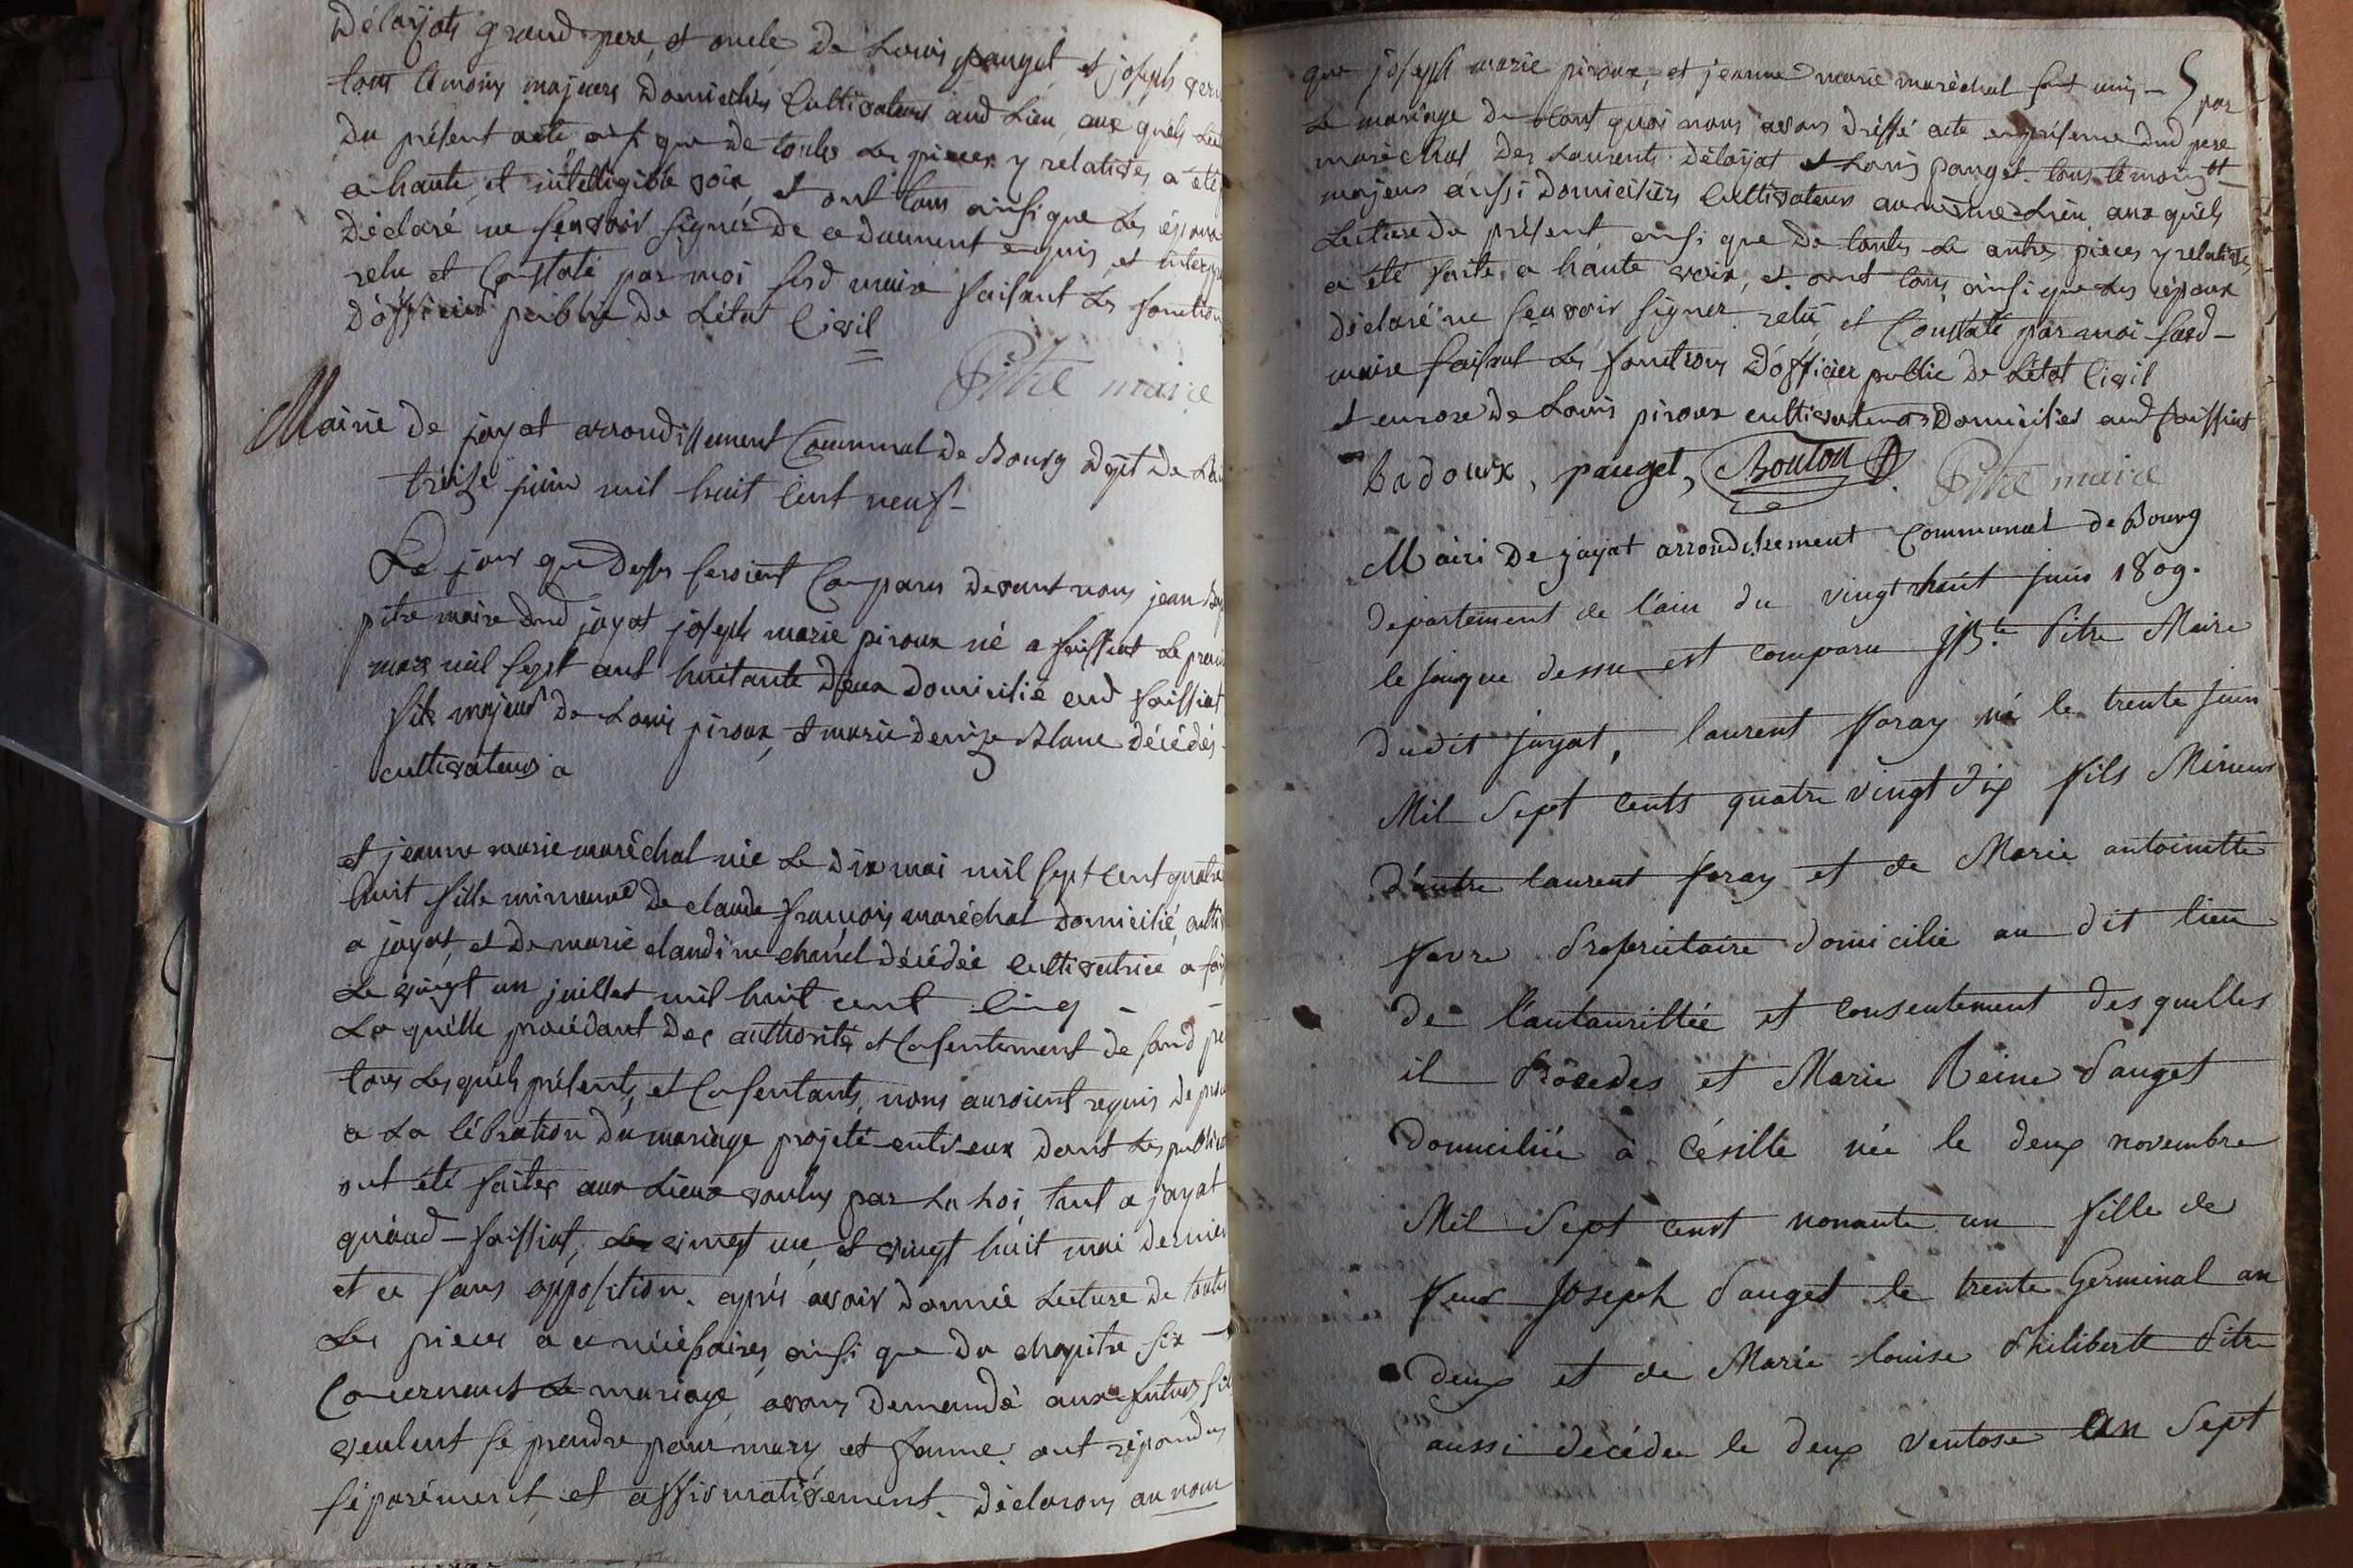 Délayat grand pere, et oncle de Louis pauget et joseph
tous témoins majeurs domiciliés Cultivateurs aud Lieu, aux quels
du présent acte ainsi que de toutes Les pieces y relatives, a été
a haute, et intelligible voix, et ont tous ainsi que Les époux
déclaré ne sçavoir signer de ce duement enquis, et
relu et Constaté par moi susd maire faisant Les fonctions
d'officier public de L'état Civil
Pitre maire
Mairie de jayat arrondissement Communal de Bourg dept de
treize juin mil huit Cent neuf
Le jour que dessus seroient Comparus devant nous jean
pitre maire dud jayat joseph marie piroux né a foissiat Le
mars mil sept cent huitante deux domicilié aud foissiat
fils majeur de Louis piroux, et marie denise Blanc décédés
cultivateurs a
et jeanne marie maréchal née Le dix mai mil sept Cent quatre
huit fille mineure de claude françois maréchal domicilié,
a jayat, et de marie claudine chanel décédée Cultivatrice a
Le vingt un juillet mil huit cent Cinq
La quelle procédant des authorité et Consentement de sond
tous Les quels présents, et Consentants, nous auroient requis de
a La Célébration du mariage projeté entr-eux dont Les
ont été faites aux Lieux voulus par La Loi, tant a jayat
qu'aud-foissiat, Les vingt un, et vingt huit mai dernier
et ce sans opposition. après avoir donnée Lecture de toutes
Les pieces a ce nécéssaires, ainsi que du chapitre six
Concernant Le mariage, avons demandé aux futurs
veulent se prendre pour mary, et fame. ont répondu
séparément, et affirmativement. déclarons au nom
que joseph marie piroux, et jeanne marie maréchal sont unis par
Le mariage de tout quoi nous avons dréssé acte en présence dud pere
maréchal, des Laurent délayat et Louis pauget tous témoins
majeurs aussi domiciliés Cultivateurs au même Lieu, aux quels
Lecture du présent ainsi que de toutes Le autres pieces y relatives,
a été faite, a haute voix, et ont tous, ainsi que Les époux
déclaré ne sçavoir signer relu, et Constaté par moi susd
maire faisant Les fonctions d'officier public de L'état Civil
et encore de Louis piroux cultivateur domicilié aud foissiat
Badoux, pauget, Bouton Pitre maire
Mairi De jayat arrondissement Communal de Bourg
departement de l'ain du vingt huit juin 1809.
le jour que dessu est comparu JBte Pitre Maire
dudit jayat, laurent foray né le trente juin
Mil Sept Cents quatre vingt dix fils Mineur
d'autre laurent foray et de Marie antoinette
favre Propriétaire domicilie au dit lieu
de l'autaurittée et Consentement des quelles
il Procedes et Marie Reine Pauget
domiciliée à Césille née le deux novembre
Mil Sept cent nonante un fille de
feux Joseph Pauget le trente Germinal an
deux et de Marie louise Philiberte Pitre
aussi décédée le deux Ventose an Sept